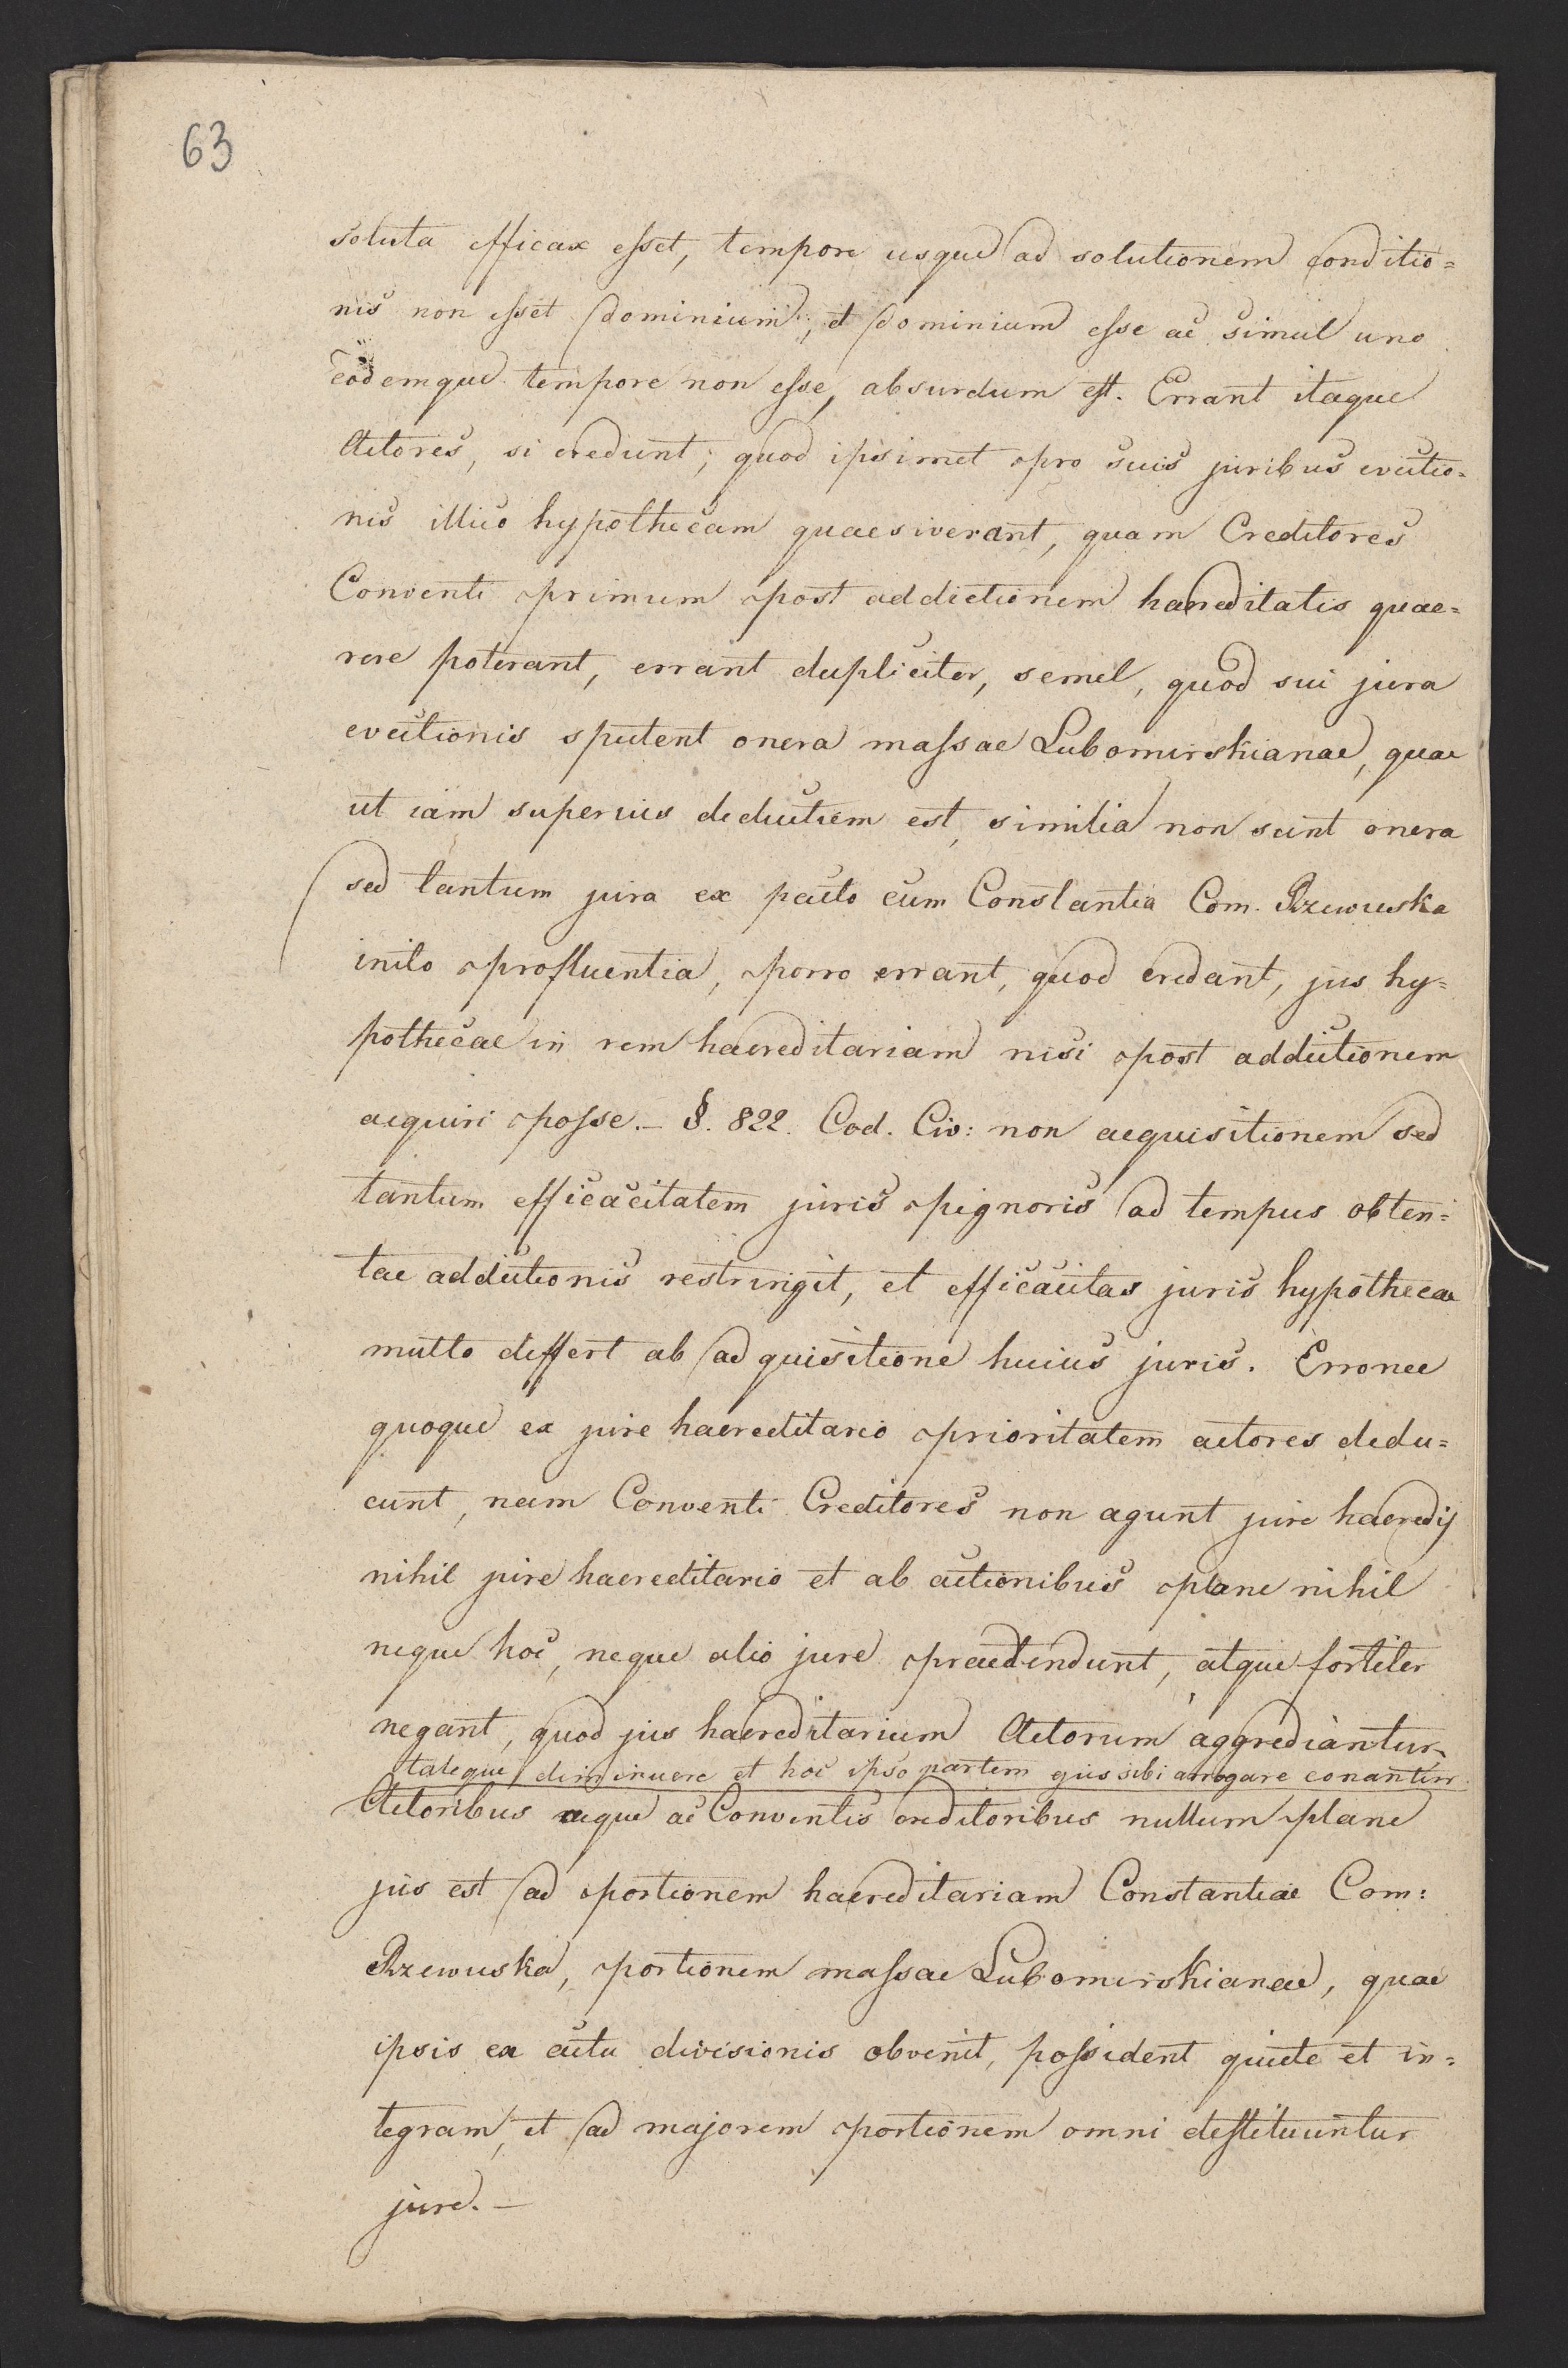 63
soluta efficax esset, tempore usque ad solutionem conditio=
nis non esset dominium; et dominium esse ac simul uno
eodemque tempore non esse, absurdum est. Errant itaque
Actores, si credunt; quod ipsimet pro suis juribus evictio=
nis illico hypothecam quaesiverant, quam Creditores
Conventi primum post addictionem haereditatis quae=
rere poterant, errant dupliciter, semel, quod sui jura
evictionis putent onera massae Lubomirskianae, quae
ut iam superius deductum est, similia non sunt onera
sed tantum jura ex pacto cum Constantia Com. Rzewuska
inito profluentia, porro errant, quod credant, jus hy=
pothecae in rem haereditariam nisi post addictionem
acquiri posse.– §. 822. Cod. Civ: non acquisitionem sed
tantum efficacitatem juris pignoris ad tempus obten=
tae addictionis restringit, et efficacitas juris hypothecae
multo differt ab adquisitione huius juris. Erronee
quoque ex jure haereditario prioritatem actores dedu=
cunt, nam Conventi Creditores non agunt jure haeredis
nihil jure haereditario et ab actionibus plane nihil
neque hoc, neque alio jure praetendunt, atque fortiter
negant, quod jus haereditarium Actorum aggrediantur
taleque diminuere et hoc ipso partem ejus sibi arrogare conantur
Actoribus aeque ac Conventis creditoribus nullum plane
jus est ad portionem haereditariam Constantiae Com:
Rzewuska, portionem massae Lubomirskianae, quae
ipsis ex actu divisionis obvenit, possident quiete et in=
tegram, et ad majorem portionem omni destituuntur
jure.–